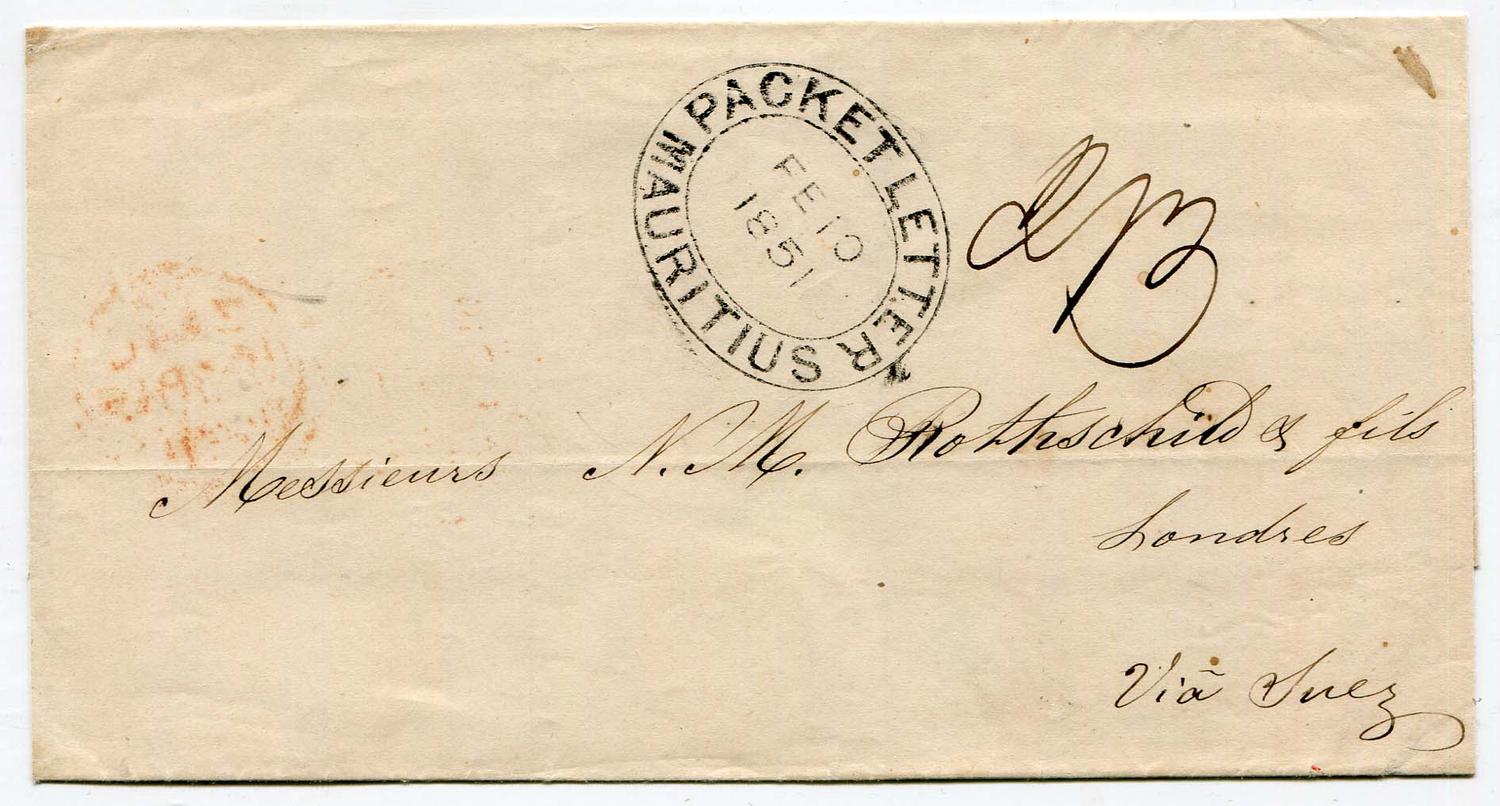 PACKET LETTER MAURITIUS
FE 10
1851
Messieurs N. M. Rothschild & fils
Londres
Viã Suez